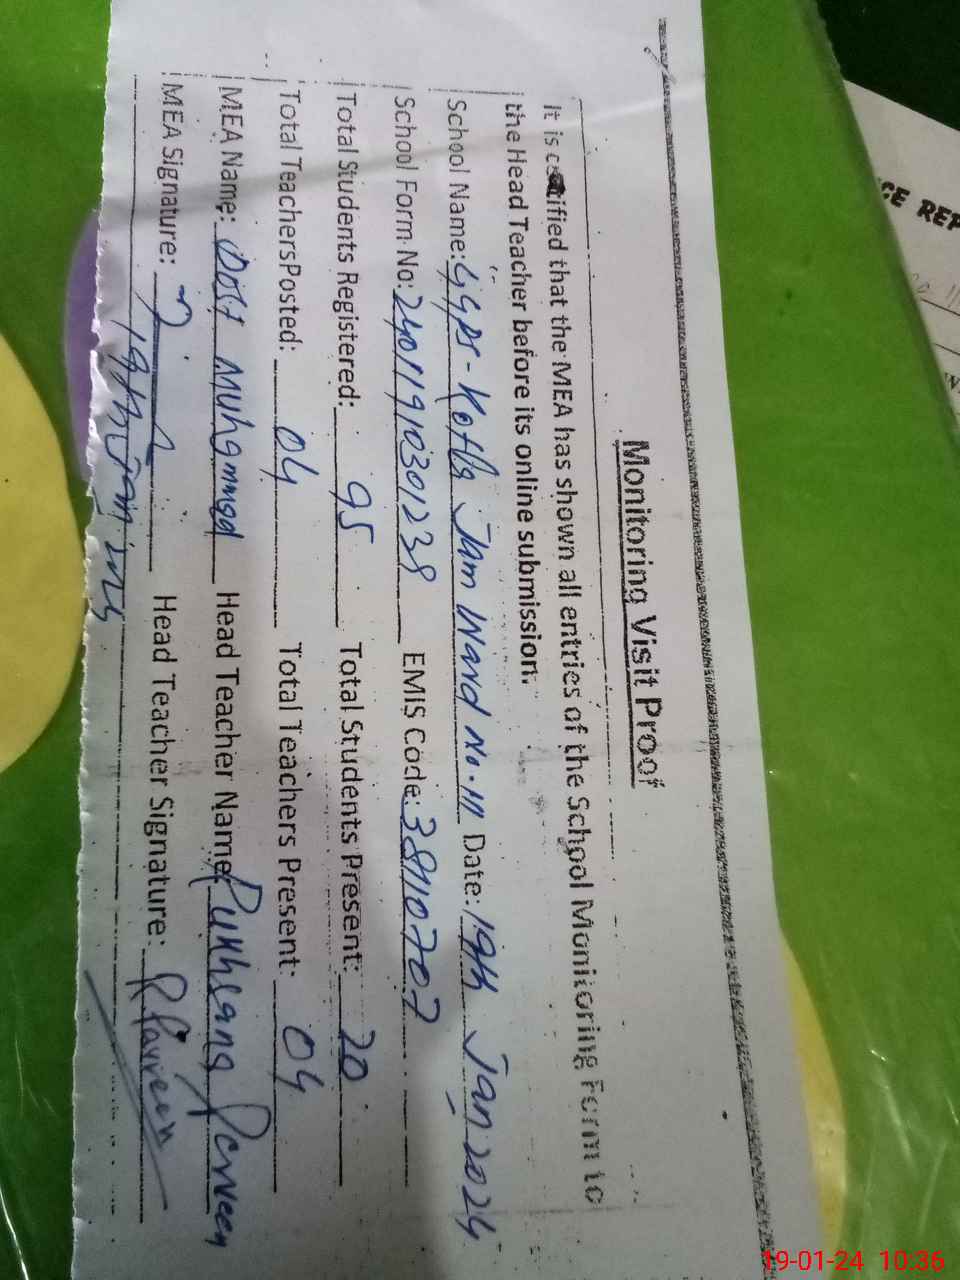 Monitoring Visit Proof
It is certified that the MEA has shown all entries of the School Monitoring Form to
the Head Teacher before its online submission.
School Name: GGPS - Kotla Jam Ward No. III Date: 19th Jan 2024
School Form No: 24011910301238 EMIS Code: 38110707
Total Students Registered: 95 Total Students Present: 20
Total Teachers Posted: 04 Total Teachers Present: 04
MEA Name: Dost Muhammad Head Teacher Name: Perveen
MEA Signature: Head Teacher Signature: Parveen
19th Jan
CE REP
19-01-24 10:36